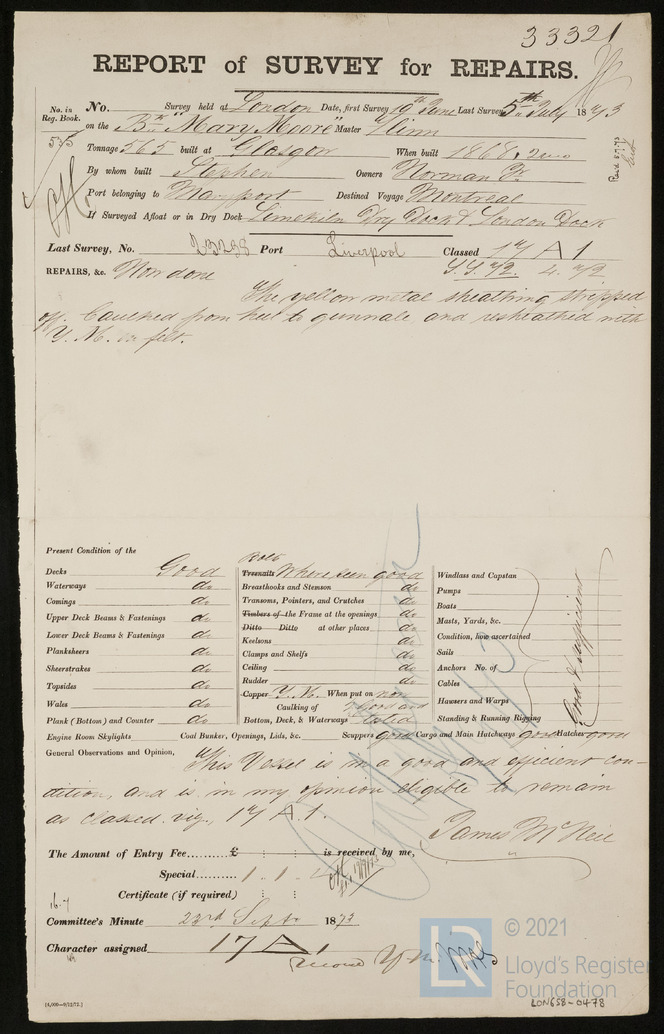 33321
REPORT of SURVEY for REPAIRS.
No. in Reg. Book. 535
No. Survey held at London Date, first Survey 19th June Last Survey 5th July 1873
on the Bk "Mary Moore" Master Flinn
Tonnage 565 built at Glasgow When built 1868
By whom built Stephen Owners Norman
Port belonging to Maryport Destined Voyage Montreal
If Surveyed Afloat or in Dry Dock Limekiln Dry Dock & London Dock
Last Survey, No. 23288 Port Liverpool Classed 17 A 1
REPAIRS, &c. Now done S.S. 72. 4. 73
The yellow metal sheathing stripped
off. Caulked from keel to gunnale and resheathed with
Y. M. on felt.
Present Condition of the
Decks Good
Waterways do
Comings do
Upper Deck Beams & Fastenings do
Lower Deck Beams & Fastenings do
Planksheers do
Sheerstrakes do
Topsides do
Wales do
Plank (Bottom) and Counter do
Engine Room Skylights
Bolts
Treenails Where seen good
Breasthooks and Stemson do
Transoms, Pointers, and Crutches do
Timbers of the Frame at the openings do
Ditto Ditto at other places do
Keelsons do
Clamps and Shelfs do
Ceiling do
Rudder do
Copper Y. M. When put on now
Caulking of Good and
Bottom, Deck, & Waterways tested
Coal Bunker, Openings, Lids, &c. Scuppers good Cargo and Main Hatchways good Hatches good
Windlass and Capstan
Pumps
Boats
Masts, Yards, &c.
Condition, how ascertained
Sails
Anchors No. of
Cables
Hawsers and Warps
Standing & Running Rigging
Good & Sufficient
General Observations and Opinion, This Vessel is in a good and efficient con-
dition, and is in my opinion eligible to remain
as classed viz., 17 A 1.
James McNeil
The Amount of Entry Fee.......... £ : : is received by me,
Special.......... 1 . 1 .
Certificate (if required)
Committee's Minute 23rd Septr 1873
Character assigned 17 A 1
© 2021
LR
Lloyd's Register
Foundation
[4,000—9/12/72.]
LON658-0478